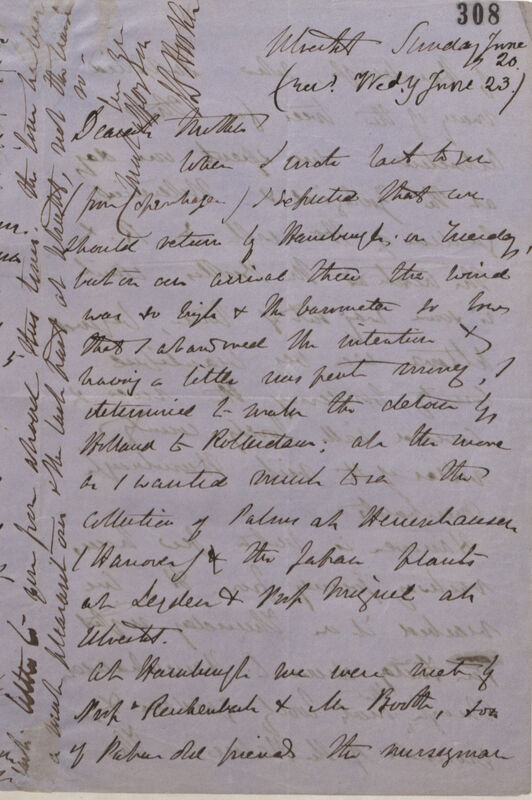 308
Utrecht Sunday June 20.
(recd. Wedy June 23.)
Dearest Mother
When I wrote last to you
from (Copenhagen) I expected that we
should return by Hamburgh, on Tuesday,
but on our arrival there the wind
was so high & the barometer so low
that I abandoned the intention &
having a little unspent money, I
determined to make the detour by
Holland to Rotterdam, all the more
as I wanted much to see the
Collection of Palms at Herrenhausen
(Hanover) & the Japan plants
at Leyden & Prof Miquel at
Utrecht.
At Hamburgh we were met by
Profr Reichenbach & Mr Booth, son
of Papas old friend the nurseryman
letter to you from abroad this time. the tour has been
a most pleasant one & the last part at Utrecht, not the least
JD Hooker